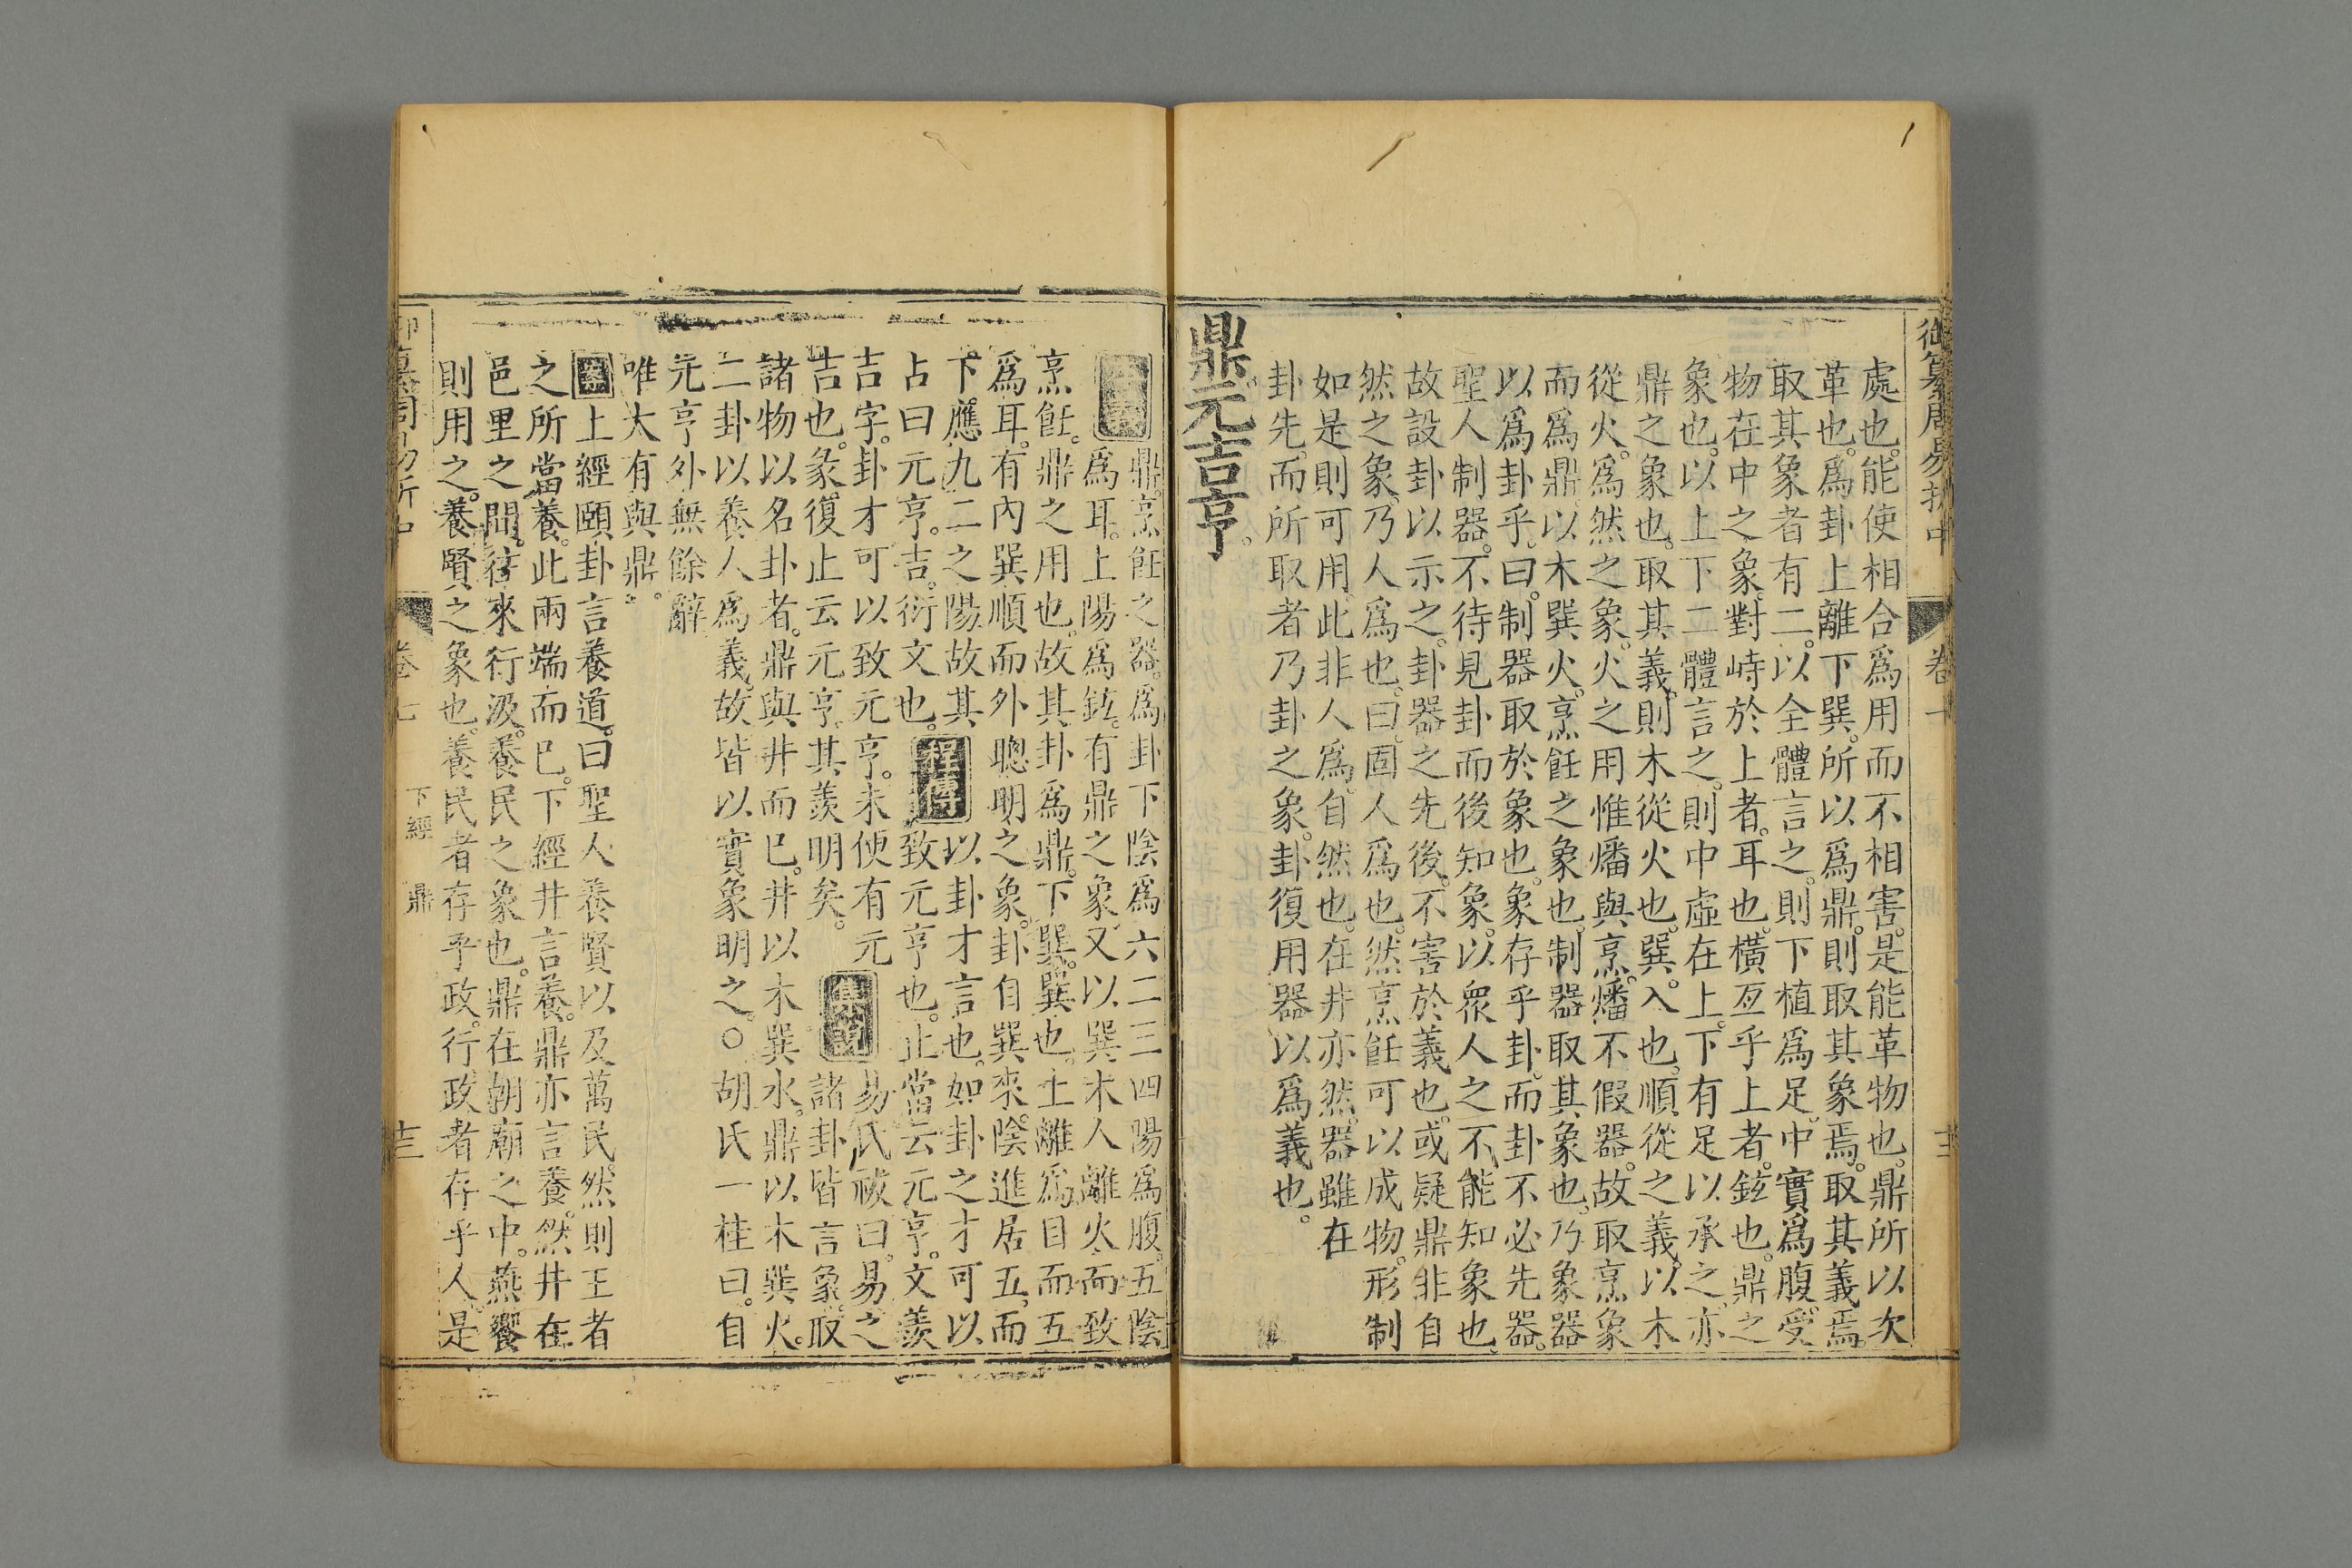 御纂周易折中
卷
處也。能使相合爲用而不相害。是能革物也。鼎所以次
革也。爲卦上離下巽。所以爲鼎。則取其象焉。取其義焉。
取其象者有二。以全體言之。則下植爲足。中實爲腹。受
物在中之象。對峙於上者。耳也。橫亙乎上者。鉉也。鼎之
象也。以上下二體言之。則中虛在上。下有足以承之。亦
鼎之象也。取其義。則木從火也。巽。入也。順從之義。以木
從火。爲然之象。火之用惟燔與烹。燔不假器。故取烹象
而爲鼎。以木巽火。烹飪之象也。制器取其象也。乃象器
以爲卦乎。曰。制器取於象也。象存乎卦。而卦不必先器。
聖人制器。不待見卦而後知象。以衆人之不能知象也。
故設卦以示之。卦器之先後。不害於義也。或疑鼎非自
然之象。乃人爲也。曰。固人爲也。然烹飪可以成物。形制
如是則可用。此非人爲。自然也。在井亦然。器雖在
卦先。而所取者乃卦之象。卦復用器以爲義也。
鼎元吉亨。
鼎。烹飪之器。爲卦下陰爲六二三四陽爲腹。五陰
爲耳。上陽爲鉉。有鼎之象。又以巽木人離火而致
烹飪。鼎之用也。故其卦爲鼎。下巽。巽也。上離爲目而五
爲耳。有內巽順而外聰明之象。卦自巽來。陰進居五。而
下應九二之陽。故其
占曰元亨。吉。衍文也。程傳以卦才言也。如卦之才可以
致元亨也。止當云元亨。文羨
吉字。卦才可以致元亨。未便有元
吉也。彖復止云元亨。其羨明矣。集說易氏祓曰。易之
諸卦皆言象。取
諸物以名卦者。鼎與井而已。井以木巽水。鼎以木巽火。
二卦以養人爲義。故皆以實象明之。○胡氏一桂曰。自
元亨外無餘辭
唯大有與鼎。
案上經頤卦言養道。曰聖人養賢以及萬民。然則王者
之所當養。此兩端而已。下經井言養。鼎亦言養。然井在
邑里之間。往來行汲。養民之象也。鼎在朝廟之中。燕饗
則用之。養賢之象也。養民者存乎政。行政者存乎人。是
卷七 下經 鼎 十三